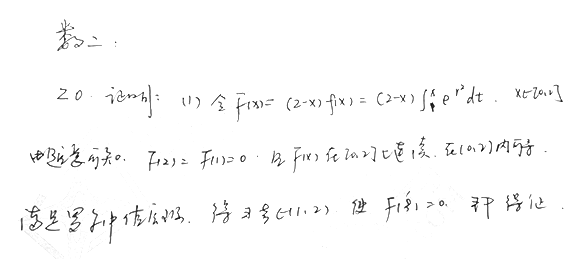 数二：
20. 证明：(1) 令 F(x) = (2-x)f(x) = (2-x)∫₁ˣ e^{t²}dt. x∈[0,2]
由题意可知. F(2) = F(1) = 0. 且 F(x) 在 [0,2] 上连续, 在 (0,2) 内可导.
满足罗尔中值定理. 得 ∃ ξ∈(1,2) 使 F'(ξ) = 0. 即得证